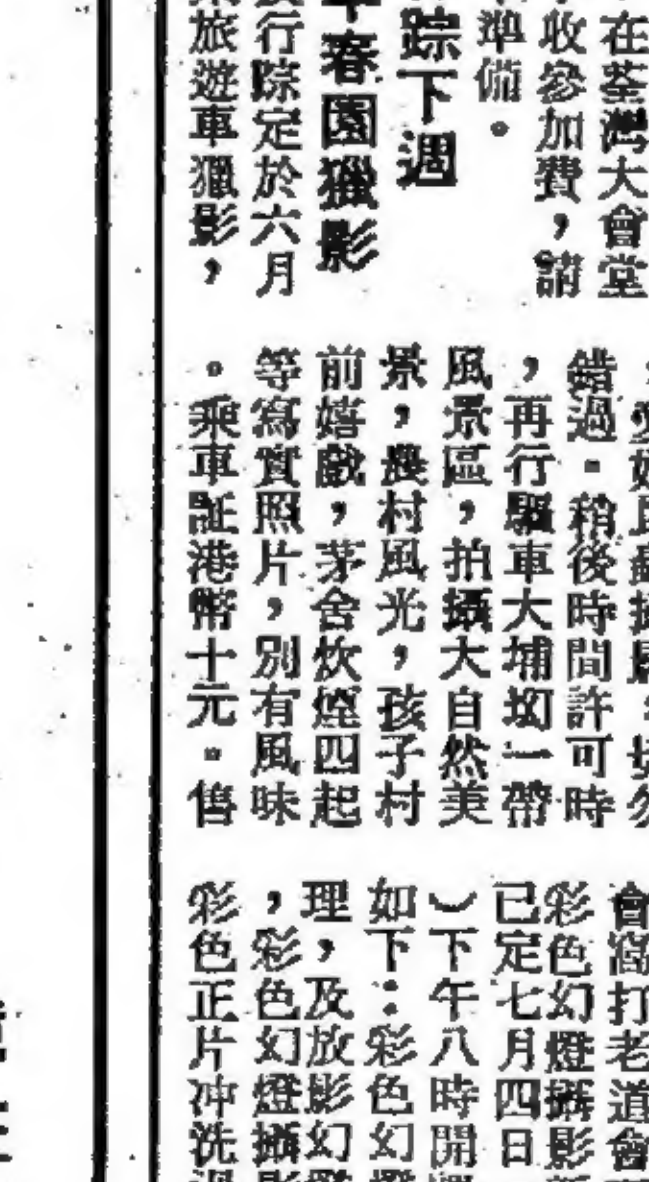 在荃灣大會堂
收參加費，講
準備。
踪下週
春園獵影
行踪定於六月
旅遊車獵影，
錯過。稍後時間許可時
，再行驅車大埔坳一帶
風景區，拍攝大自然美
景，農村風光，孩子村
前嬉戲，茅舍炊煙四起
等寫實照片，別有風味
。乘車証港幣十元。售
會窩打老道會
彩色幻燈攝影
已定七月四日
）下午八時開
如下：彩色幻
理，及放影幻
，彩色幻燈攝
彩色正片冲洗